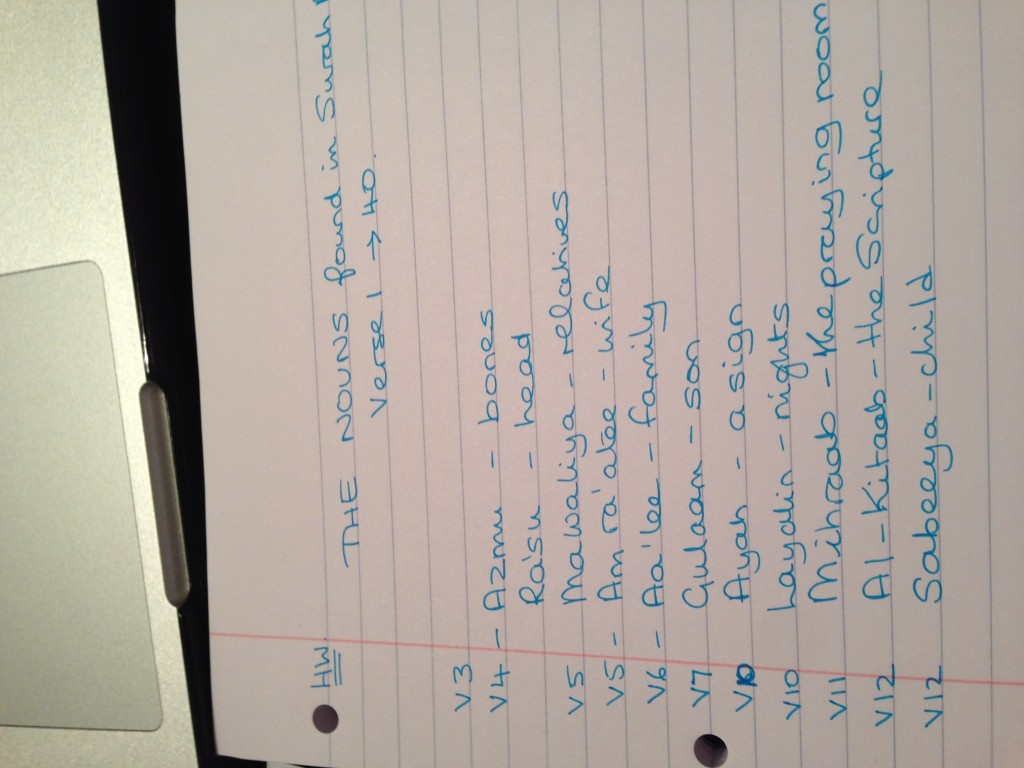 HW. THE NOUNS found in Surah
verse 1 → 40.
V3
V4 - Azmu - bones
Ra'su - head
V5 Mawaliya - relatives
V5 - Am ra'atee - wife
V6 - Aa'lee - family
V7 Gulaam - son
V10 Ayah - a sign
V10 Layalin - nights
V11 Mihraab - the praying room
V12 Al-Kitaab - the Scripture
V12 Sabeeya - child